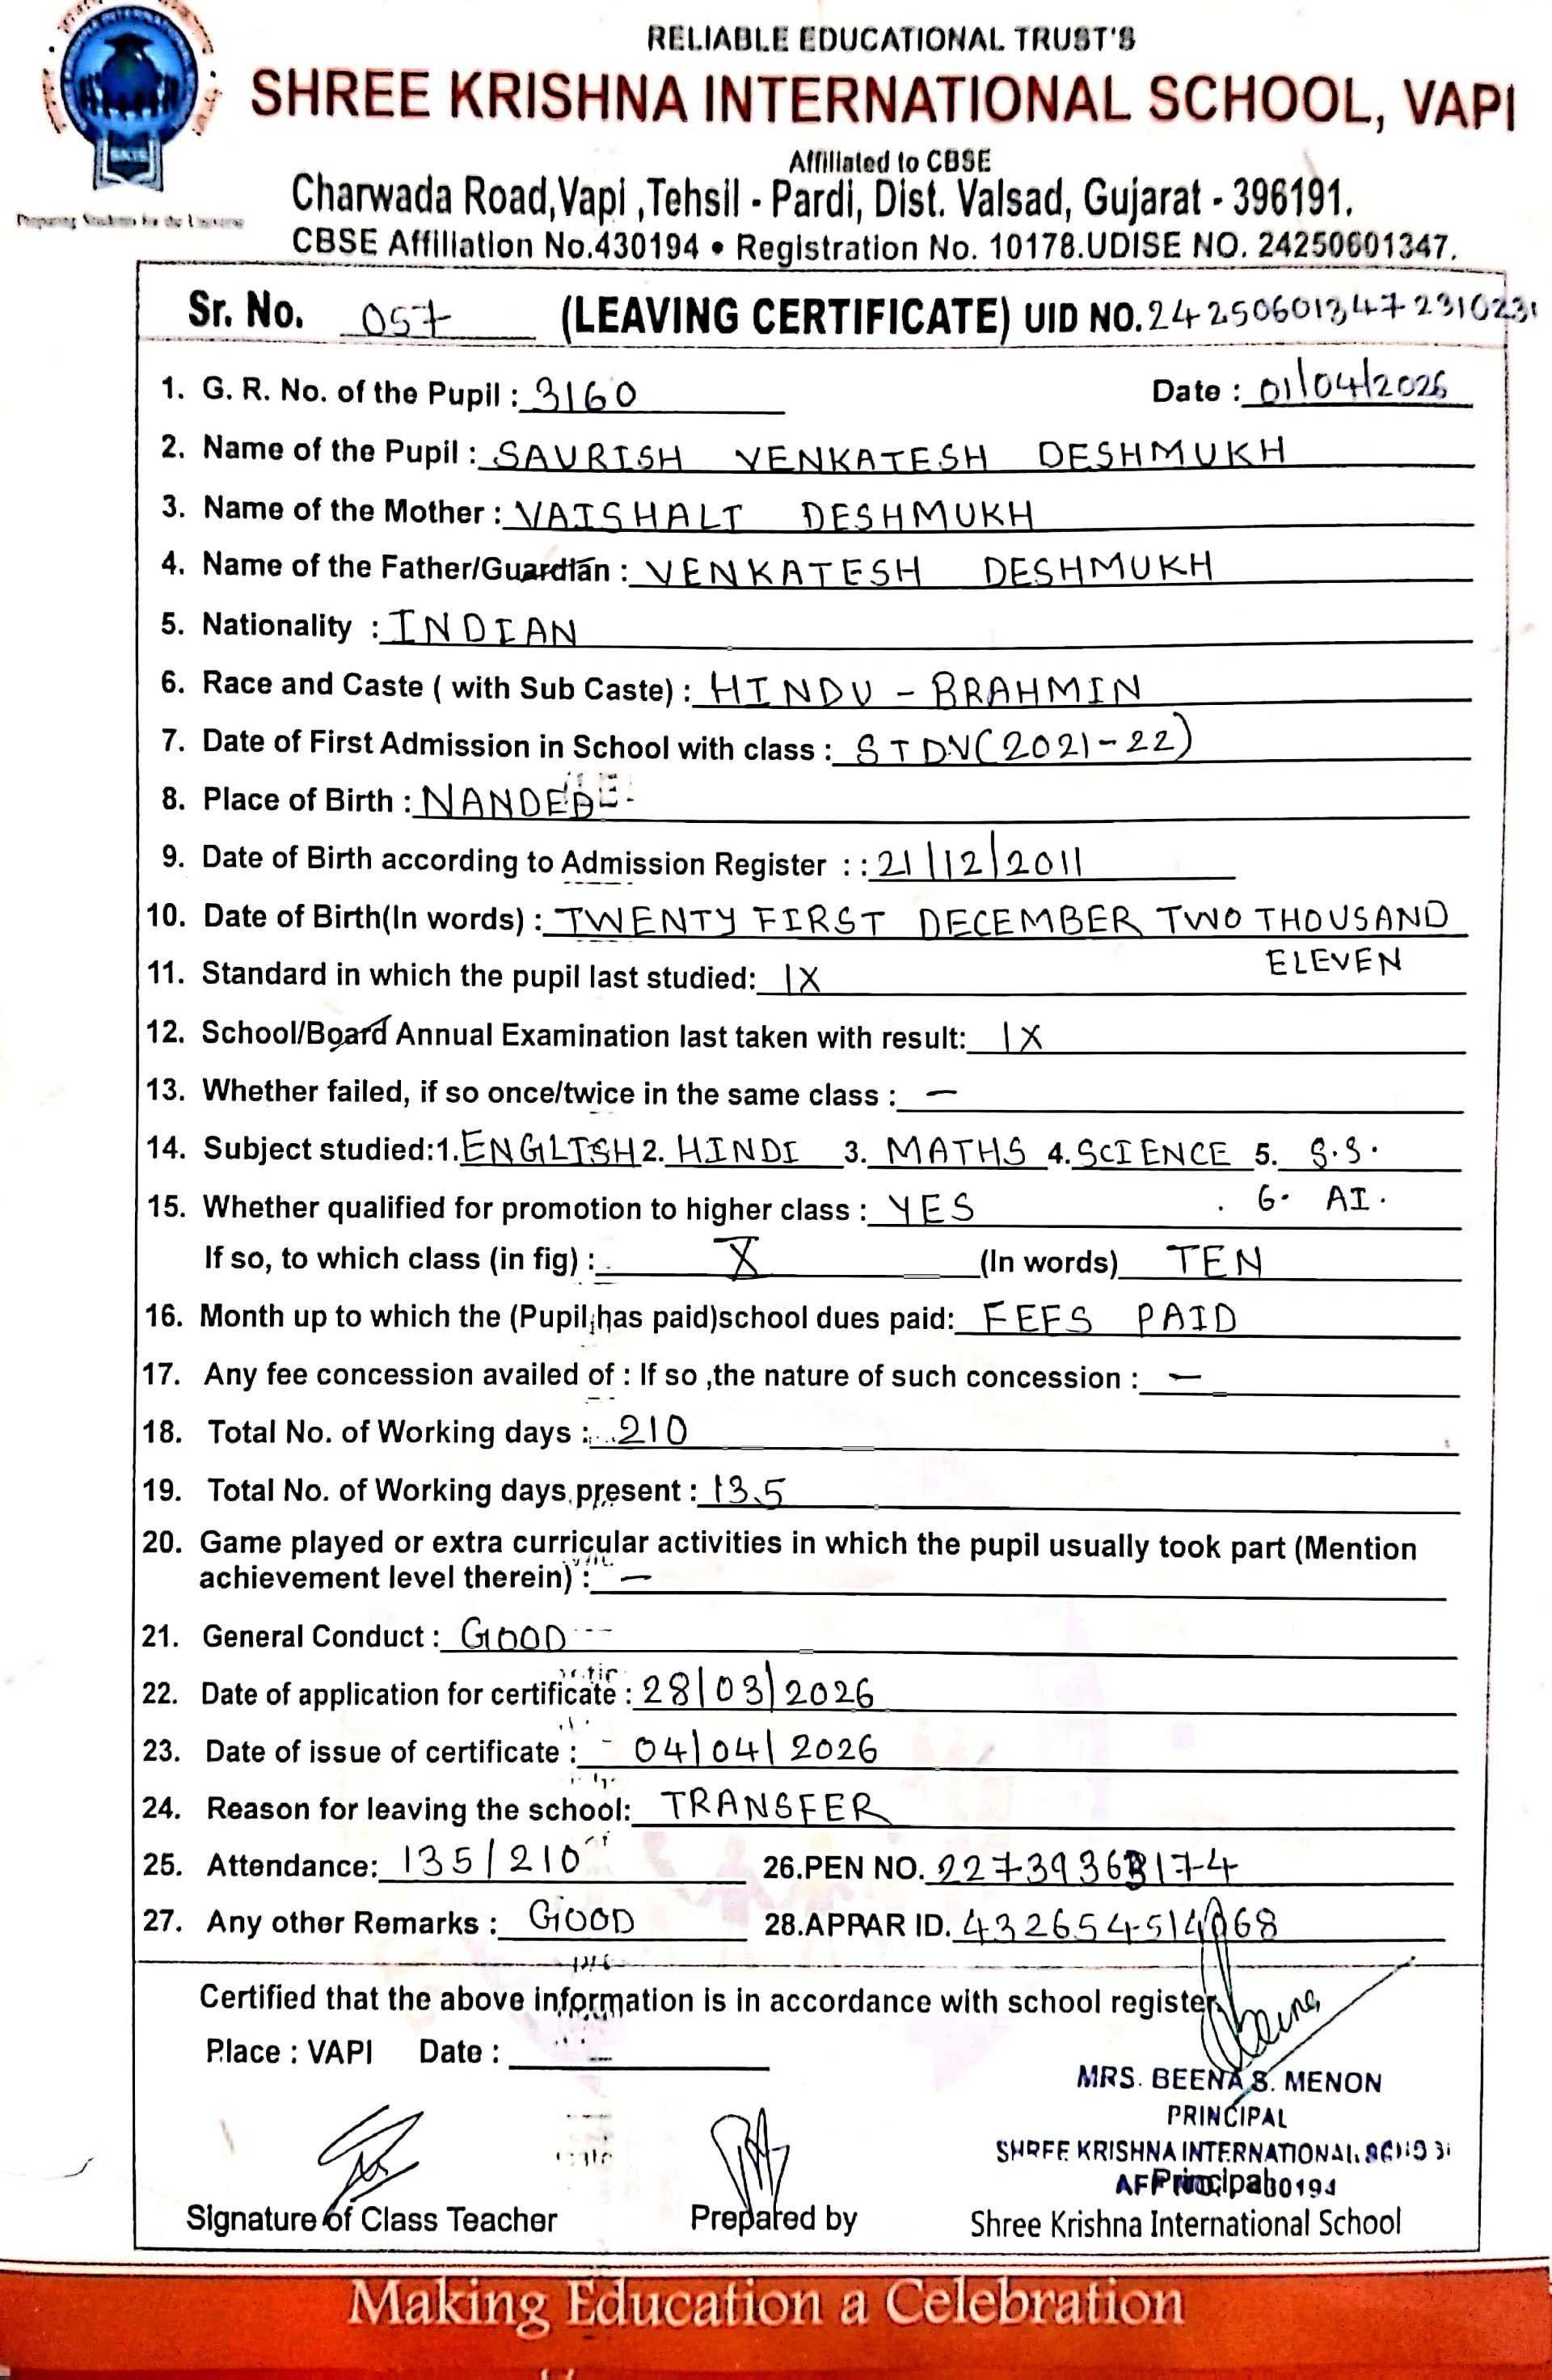 RELIABLE EDUCATIONAL TRUST'S
SHREE KRISHNA INTERNATIONAL SCHOOL, VAPI
Affiliated to CBSE
Charwada Road,Vapi ,Tehsil - Pardi, Dist. Valsad, Gujarat - 396191.
Preparing Students for the Universe
CBSE Affiliation No.430194 • Registration No. 10178.UDISE NO. 24250601347.
Sr. No. 057 (LEAVING CERTIFICATE) UID NO. 242506013472310231
1. G. R. No. of the Pupil : 3160 Date : 01/04/2026
2. Name of the Pupil : SAURISH VENKATESH DESHMUKH
3. Name of the Mother : VAISHALI DESHMUKH
4. Name of the Father/Guardian : VENKATESH DESHMUKH
5. Nationality : INDIAN
6. Race and Caste ( with Sub Caste) : HINDU - BRAHMIN
7. Date of First Admission in School with class : STD V (2021-22)
8. Place of Birth : NANDED
9. Date of Birth according to Admission Register : : 21/12/2011
10. Date of Birth(In words) : TWENTY FIRST DECEMBER TWO THOUSAND
ELEVEN
11. Standard in which the pupil last studied: IX
12. School/Board Annual Examination last taken with result: IX
13. Whether failed, if so once/twice in the same class : —
14. Subject studied:1. ENGLISH 2. HINDI 3. MATHS 4. SCIENCE 5. S.S.
6. AI.
15. Whether qualified for promotion to higher class : YES
If so, to which class (in fig) : X (In words) TEN
16. Month up to which the (Pupil has paid)school dues paid: FEES PAID
17. Any fee concession availed of : If so ,the nature of such concession : —
18. Total No. of Working days : 210
19. Total No. of Working days present : 135
20. Game played or extra curricular activities in which the pupil usually took part (Mention
achievement level therein) : —
21. General Conduct : GOOD
22. Date of application for certificate : 28/03/2026
23. Date of issue of certificate : 04/04/2026
24. Reason for leaving the school: TRANSFER
25. Attendance: 135/210 26.PEN NO. 22739363174
27. Any other Remarks : GOOD 28.APPAR ID. 432654514068
Certified that the above information is in accordance with school register
Place : VAPI Date :
MRS. BEENA S. MENON
PRINCIPAL
SHREE KRISHNA INTERNATIONAL SCHOOL
Principal
Signature of Class Teacher Prepared by Shree Krishna International School
Making Education a Celebration